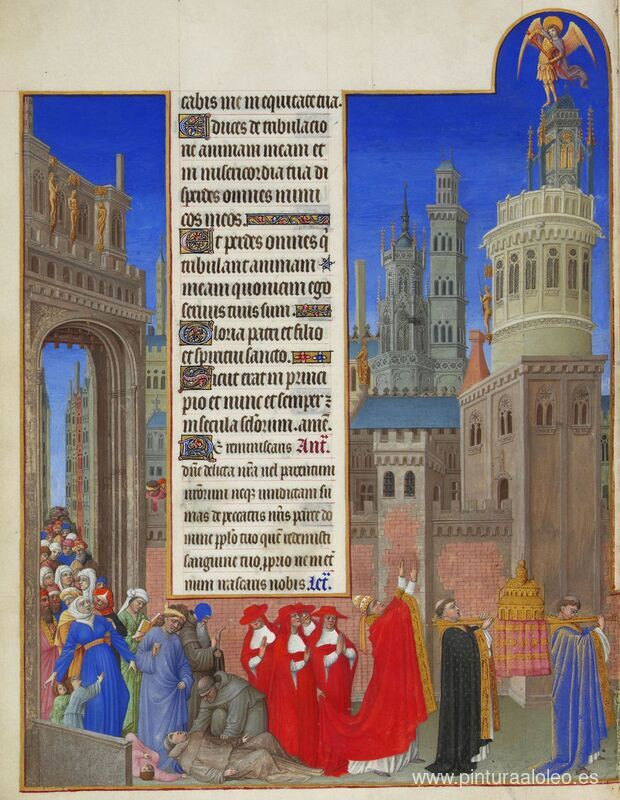 cabis me in equitate tua.
Educes de tribulacio
ne animam meam et
in misericordia tua di
sperdes omnes inimi
cos meos.
Et perdes omnes q̄
tribulant animam
meam quoniam ego
servus tuus sum.
Gloria patri et filio
et spiritui sancto.
Sicut erat in princi
pio et nunc et semper
in secula sclorum. amē.
Ne reminiscaris Anī.
dn̄e delicta nr̄a vel parentum
nr̄orum neqꝫ vindictam su
mas de peccatis nr̄is parce do
mine pplo tuo quē redemisti
sanguine tuo, pprio ne in et
num irascaris nobis. 
www.pinturaaloleo.es